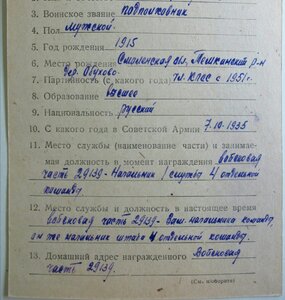 3. Воинское звание подполковник
4. Пол мужской.
5. Год рождения 1915
6. Место рождения Смоленская обл, Темкинский р-н
дер. Обухово
7. Партийность (с какого года) Чл. КПСС с 1951 г.
8. Образование высшее
9. Национальность русский
10. С какого года в Советской Армии 7.10-1935
11. Место службы (наименование части) и занимае-
мая должность в момент награждения войсковая
часть 29139 - Начальник службы 4 отдельной
команды.
12. Место службы и должность в настоящее время
войсковая часть 29139 - Зам. начальника команды,
он же начальник штаба 4 отдельной команды.
13. Домашний адрес награжденного Войсковая
часть 29139.
(См. на обороте)